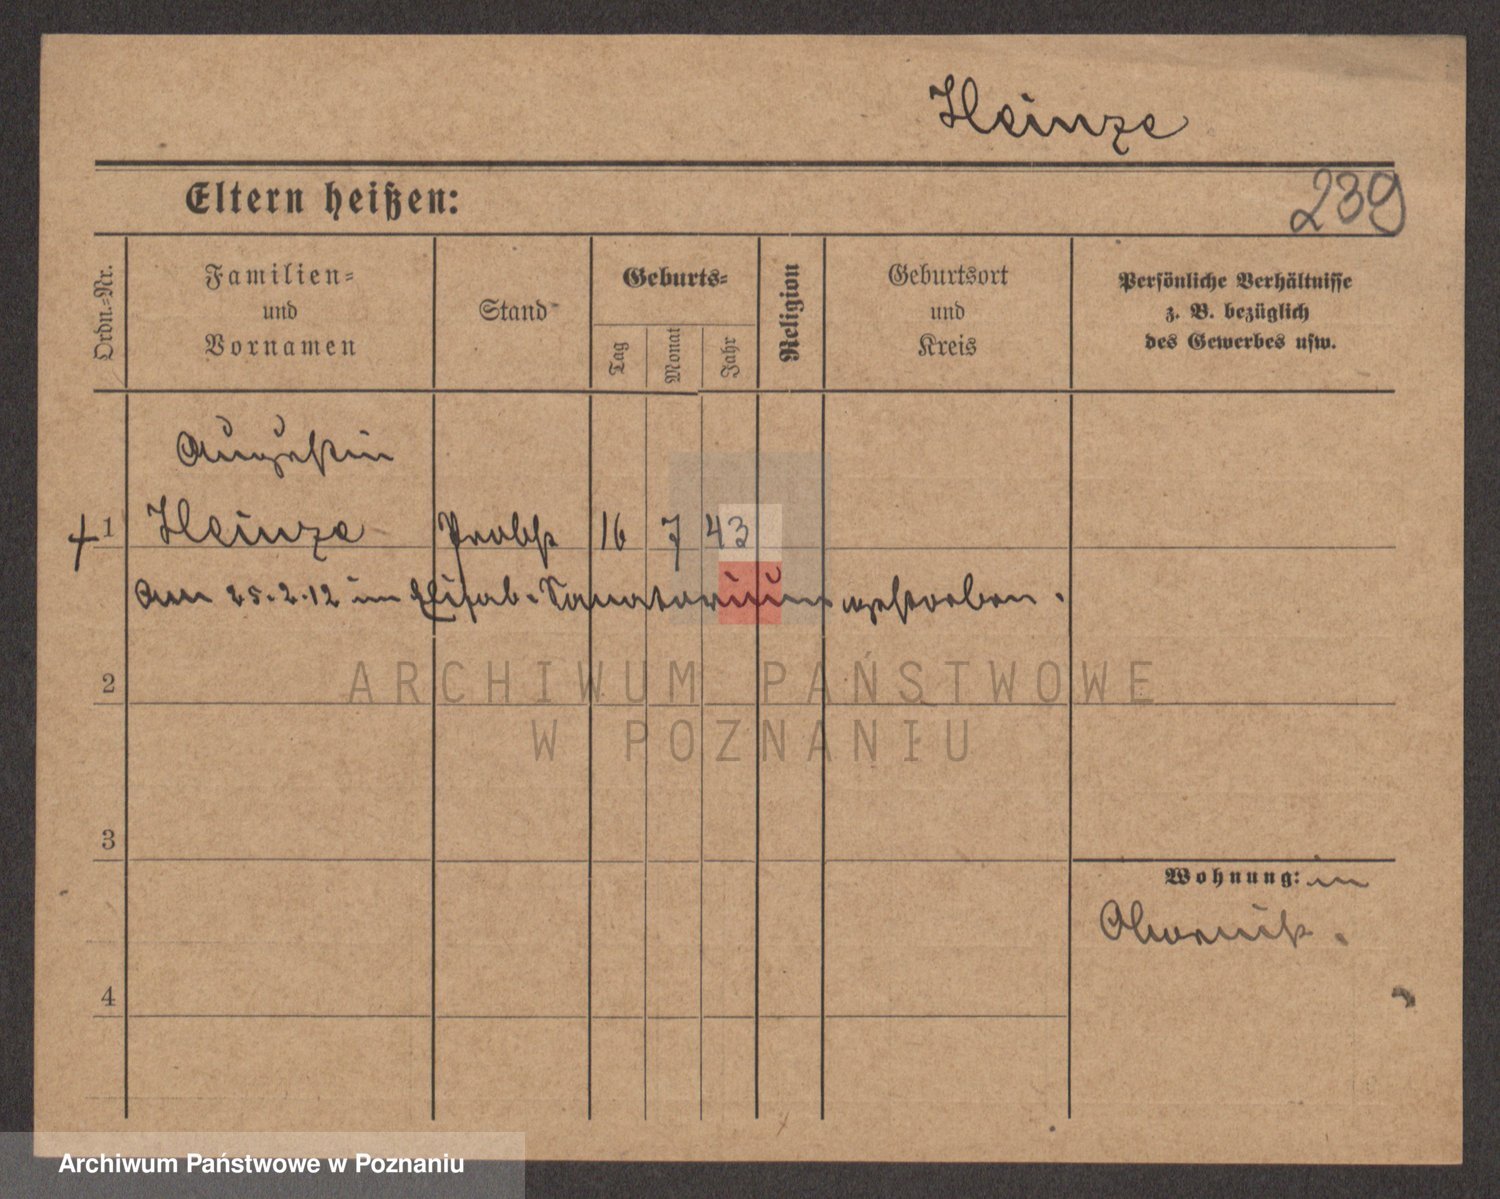 Heinze
239
Eltern heißen:
Ordn.-Nr.
Familien-
und
Vornamen
Stand
Geburts-
Tag
Monat
Jahr
Religion
Geburtsort
und
Kreis
Persönliche Verhältnisse
z. B. bezüglich
des Gewerbes usw.
Augustin
+ 1 Heinze Probst 16 7 43
am 25.2.12 im Elisab. Sanatorium gestorben.
2
ARCHIWUM PAŃSTWOWE
W POZNANIU
3
Wohnung: in
Obornik.
4
Archiwum Państwowe w Poznaniu